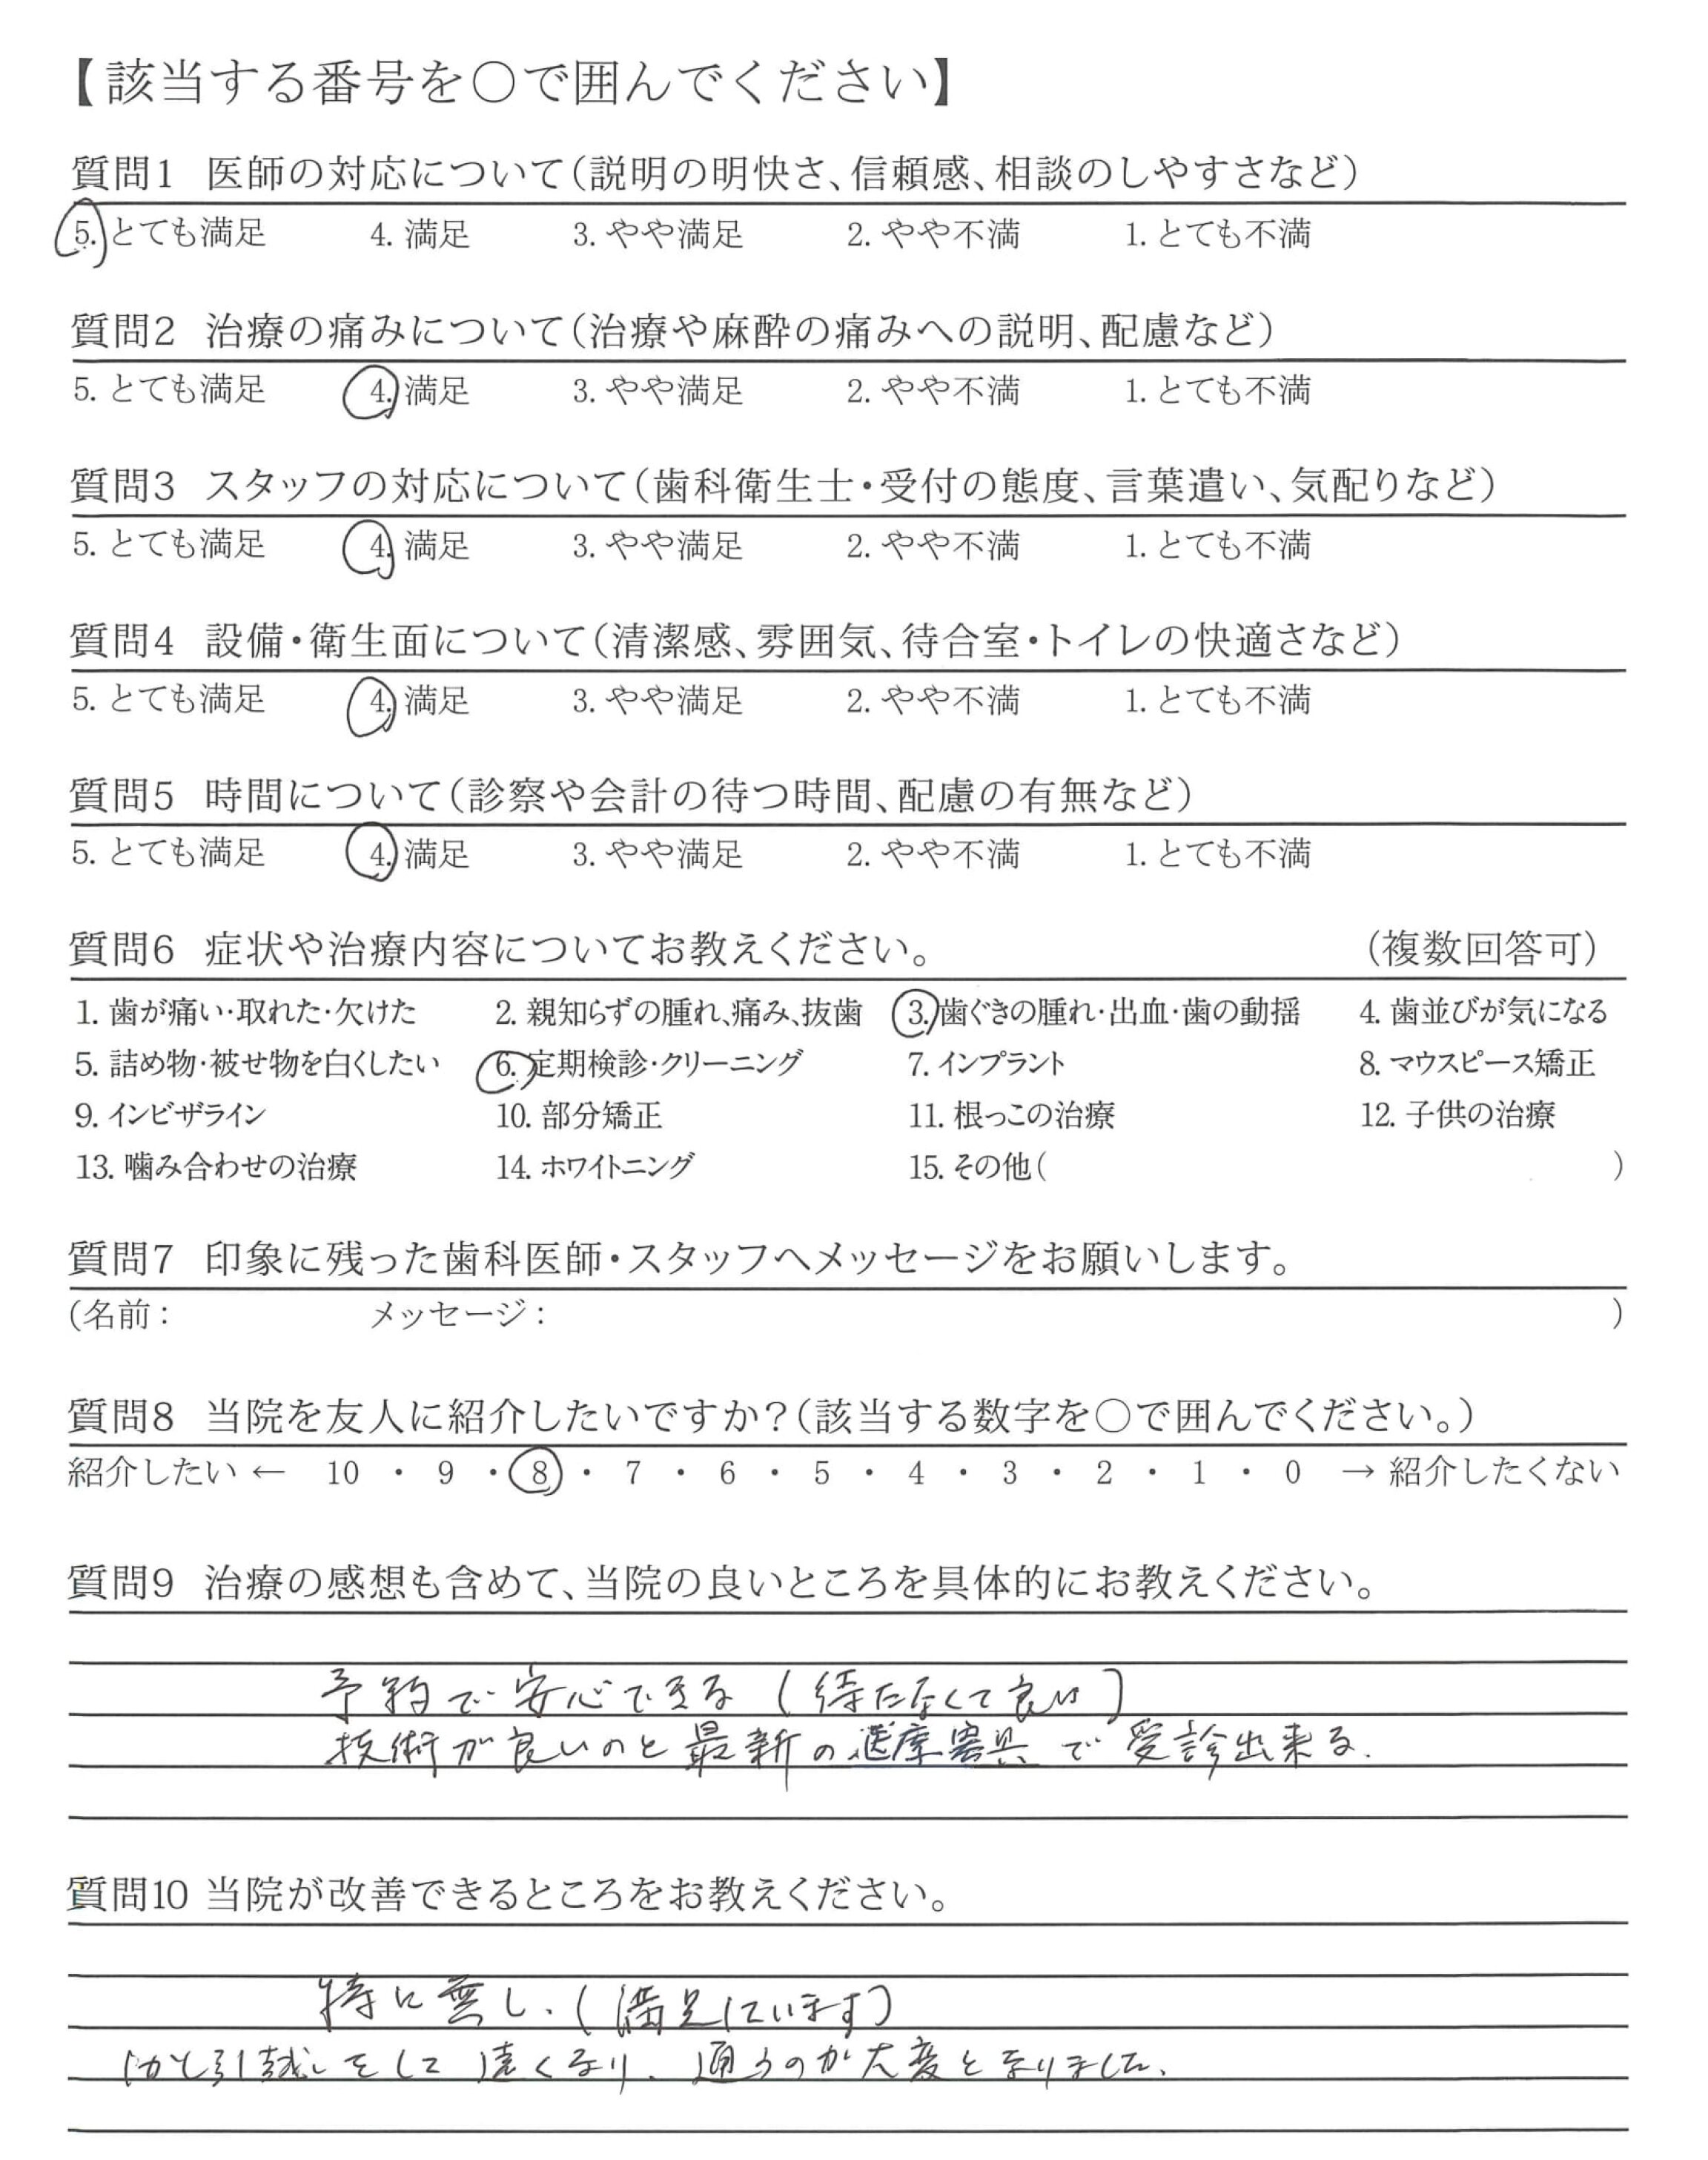 【該当する番号を○で囲んでください】
質問1 医師の対応について(説明の明快さ、信頼感、相談のしやすさなど)
5. とても満足 4. 満足 3. やや満足 2. やや不満 1. とても不満
質問2 治療の痛みについて(治療や麻酔の痛みへの説明、配慮など)
5. とても満足 4. 満足 3. やや満足 2. やや不満 1. とても不満
質問3 スタッフの対応について(歯科衛生士・受付の態度、言葉遣い、気配りなど)
5. とても満足 4. 満足 3. やや満足 2. やや不満 1. とても不満
質問4 設備・衛生面について(清潔感、雰囲気、待合室・トイレの快適さなど)
5. とても満足 4. 満足 3. やや満足 2. やや不満 1. とても不満
質問5 時間について(診察や会計の待つ時間、配慮の有無など)
5. とても満足 4. 満足 3. やや満足 2. やや不満 1. とても不満
質問6 症状や治療内容についてお教えください。 (複数回答可)
1. 歯が痛い・取れた・欠けた 2. 親知らずの腫れ、痛み、抜歯 3. 歯ぐきの腫れ・出血・歯の動揺 4. 歯並びが気になる
5. 詰め物・被せ物を白くしたい 6. 定期検診・クリーニング 7. インプラント 8. マウスピース矯正
9. インビザライン 10. 部分矯正 11. 根っこの治療 12. 子供の治療
13. 噛み合わせの治療 14. ホワイトニング 15. その他( )
質問7 印象に残った歯科医師・スタッフへメッセージをお願いします。
(名前: メッセージ: )
質問8 当院を友人に紹介したいですか?(該当する数字を○で囲んでください。)
紹介したい ← 10 ・ 9 ・ 8 ・ 7 ・ 6 ・ 5 ・ 4 ・ 3 ・ 2 ・ 1 ・ 0 → 紹介したくない
質問9 治療の感想も含めて、当院の良いところを具体的にお教えください。
予約で安心できる (待たなくて良い)
技術が良いのと最新の医療器具で受診出来る.
質問10 当院が改善できるところをお教えください。
特に無し. (満足しています)
しかし引越しをして遠くなり、通うのが大変となりました.